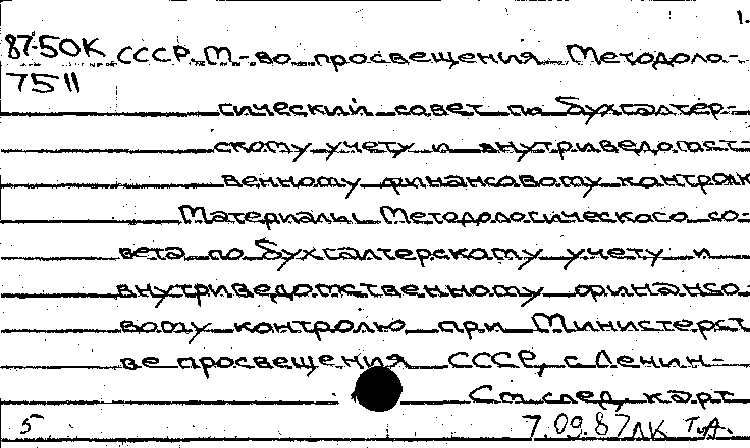 1.
87-50К СССР. М-во просвещения Методоло-
7511
гический совет по бухгалтер-
скому учету и внутриведомст-
венному финансовому контролю
Материалы Методологического со-
вета по бухгалтерскому учету и
внутриведомственному финансо-
вому контролю при Министерст-
ве просвещения СССР, г. Ленин-
См. след. карт.
5 7.09.87 ЛК Т.А.